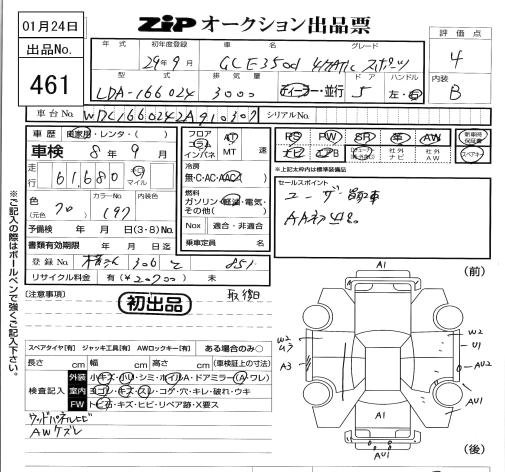 01月24日
出品No.
461
ZIP オークション出品票
評価点
4
内装
B
年式 初年度登録 車名 グレード
29年9月 GLE350d 4MATIC スポーツ
型式 排気量 ドア ハンドル
LDA-166024 3000 ディーラー・並行 5 左・右
車台No. WDC1660242A910307 シリアルNo.
車歴 自家用・レンタ・( )
車検 8年9月
走行 61,680 km マイル
色 (元色) クロ カラーNo. (197) 内装色
予備検 年 月 日(3・8)No.
書類有効期限 年 月 日迄
登録No. 306 851
リサイクル料金 有(¥20700)未
フロア コラム インパネ AT MT 速
冷房 無・C・AC・AAC
燃料 ガソリン・軽油・電気・その他( )
Nox 適合・非適合
乗車定員 名
PS PW SR 革 AW 新車時保証書
ナビ TV B 社外ナビ 社外AW スペアキー
※上記太枠内は標準装備
セールスポイント
ユーザー買取車
AA初出品
※ご記入の際はボールペンで強くご記入下さい。
[注意事項]
初出品
スペアタイヤ[有] ジャッキ工具[有] AWロックキー[有] ある場合のみ○
長さ cm 幅 cm 高さ cm (車検証上の寸法)
検査記入
外装 小キズ・小U・シミ・ホイルA・ドアミラー(A・ワレ)
室内 ヨゴレ・キズ・スレ・コゲ・穴・キレ・破れ・ウキ
FW トビ石・キズ・ヒビ・リペア跡・X要ス
ウッドパネルヒビ
AWケズレ
(前)
A1
W2
U3
A3
W2
U1
AU2
AU1
A1
AU1
(後)